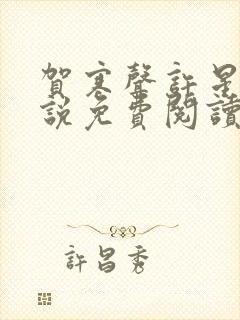 賀寒聲許星
說免費閱讀
許昌秀